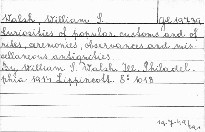 Walsh, William S.
Curiosities of popular customs and of
rites, ceremonies, observances and mis-
cellaneous antiquities
By William S. Walsh Ill. Philadel-
phia 1914 Lippincott. 8° 1018